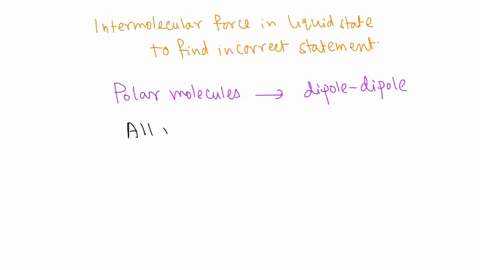 Intermolecular force in liquid state
to find incorrect statement.
Polar molecules → dipole-dipole
All